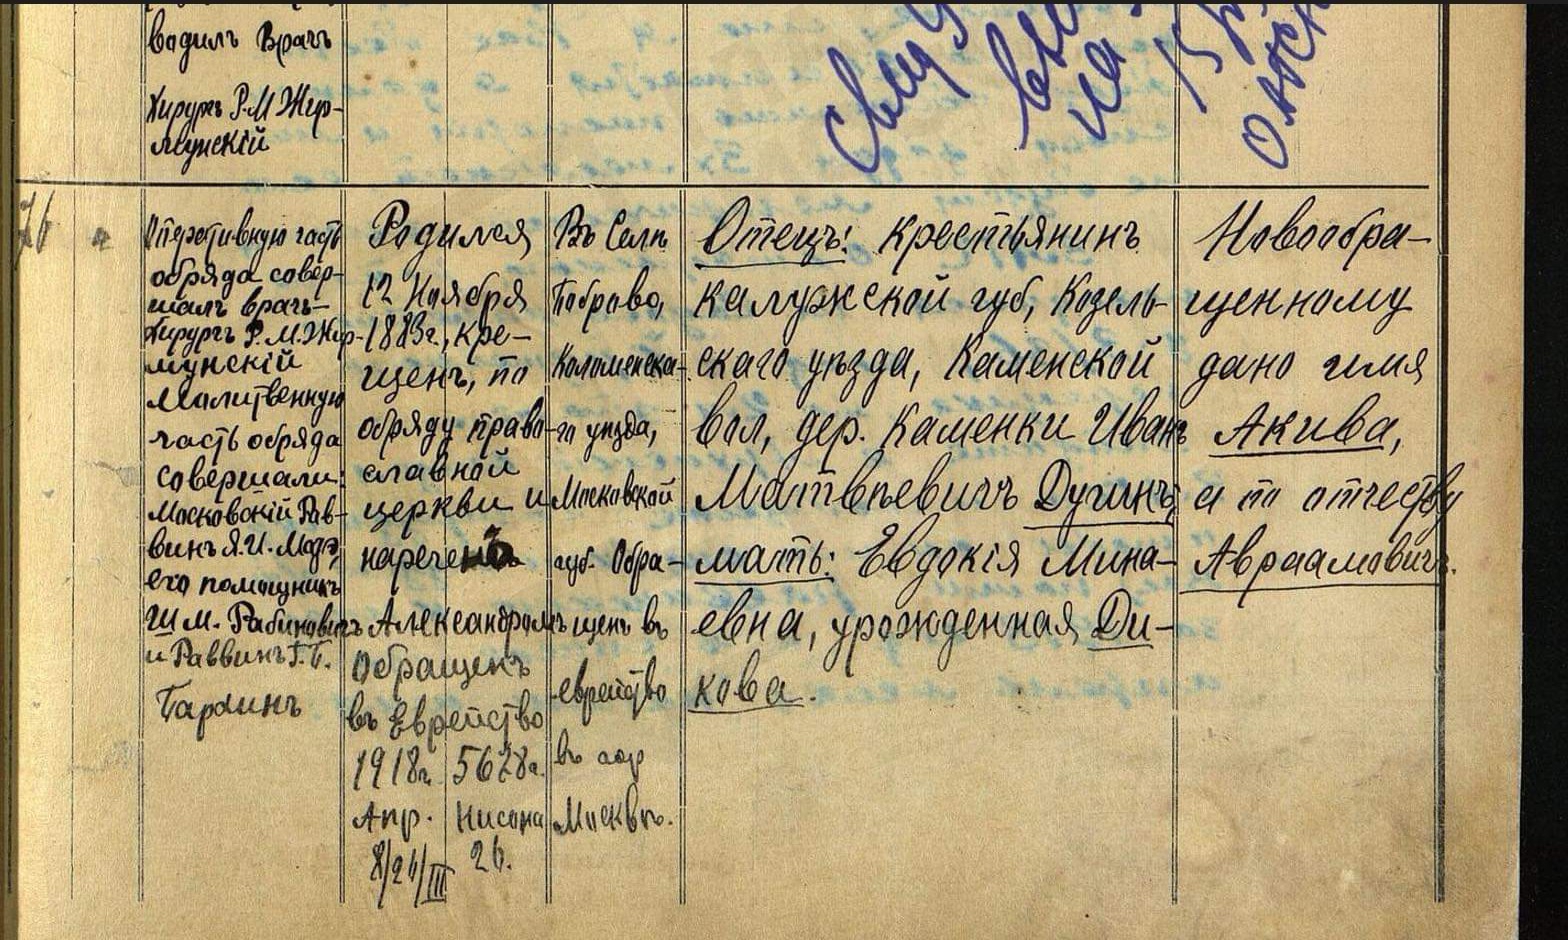 водилъ Врачъ
Хирургъ Р.М Жир-
мунскій
76
Оперативную часть
обряда совер-
шалъ врачъ-
Хирургъ Р.М.Жир-
мунскій
Молитвенную
часть обряда
совершали:
Московскій Рав-
винъ Я.И. Мазэ,
его помощникъ
Ш М. Рабиновичъ
и Раввинъ Г.Б.
Гардинъ
Родился
12 Ноября
1883г., кре-
щенъ, по
обряду право-
славной
церкви и
нареченъ
Александромъ
Обращенъ
въ Еврейство
1918г. 5678г.
Апр. Нисона
8/26/III 26.
Въ Селѣ
Боброво,
Коломенска-
го уѣзда,
Московской
губ. Обра-
щенъ въ
еврейство
въ гор
Москвѣ.
Отецъ: крестьянинъ
Калужской губ, Козель-
скаго уѣзда, Каменской
вол, дер. Каменки Иванъ
Матвѣевичъ Дугинъ,
мать: Евдокія Мина-
евна, урожденная Ди-
кова.
Новообра-
щенному
дано имя
Акива,
а по отчеству
Авраамовичъ.